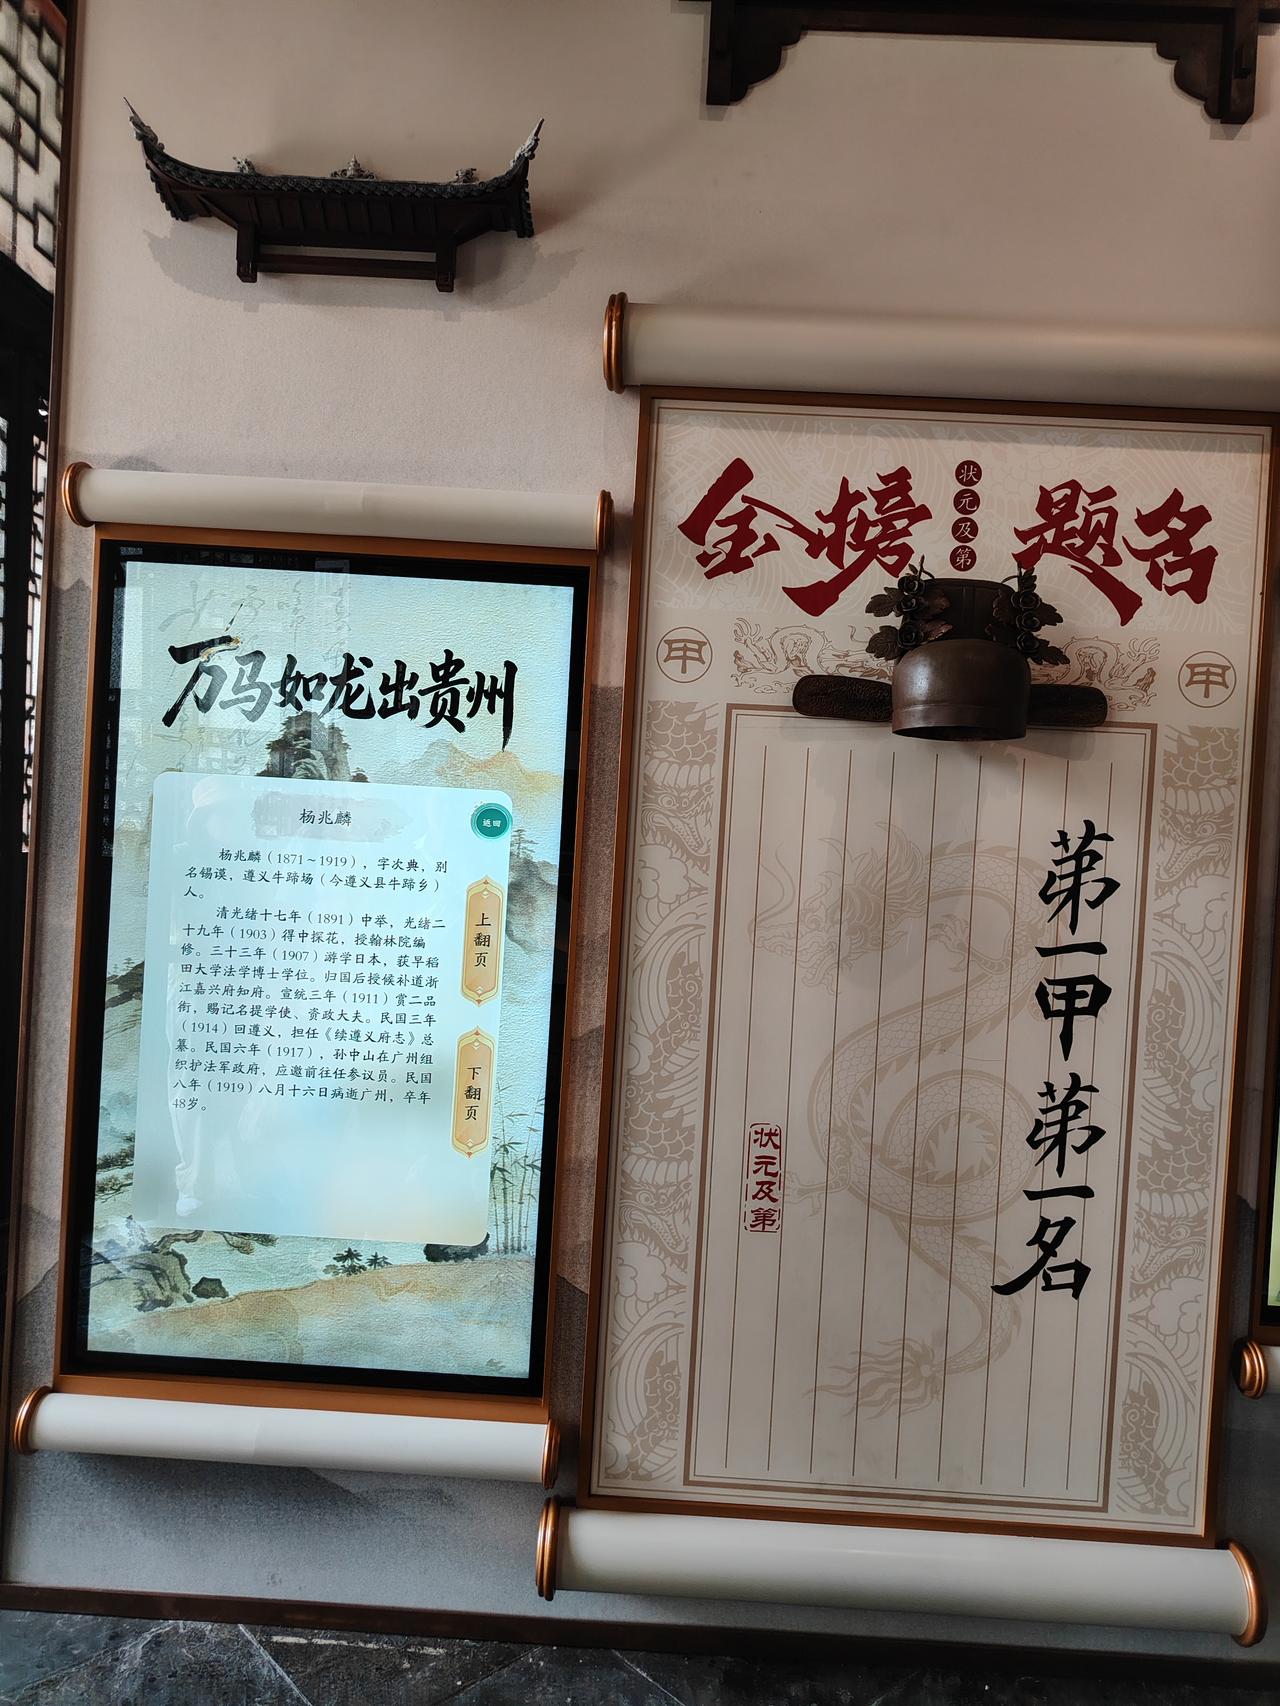 万马如龙出贵州
杨兆麟
返回
杨兆麟（1871～1919），字次典，别
名锡谟，遵义牛蹄场（今遵义县牛蹄乡）
人。
清光绪十七年（1891）中举，光绪二
十九年（1903）得中探花，授翰林院编
修。三十三年（1907）游学日本，获早稻
田大学法学博士学位。归国后授候补道浙
江嘉兴府知府。宣统三年（1911）赏二品
衔，赐记名提学使、资政大夫。民国三年
（1914）回遵义，担任《续遵义府志》总
纂。民国六年（1917），孙中山在广州组
织护法军政府，应邀前往任参议员。民国
八年（1919）八月十六日病逝广州，卒年
48岁。
上翻页
下翻页
金榜题名
状元及第
甲
甲
第一甲第一名
状元及第